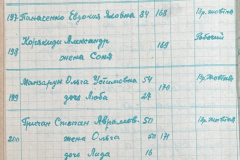 197 Панасенко Евдокия Яковна 84 168 Пр. жовтня
198 Корякида Александр 169 Рабочий
жена Соня
199 Манзарук Ольга Устимовна 54 170 Пр. жовтня
дочь Люба 27
200 Степан Абрамов. 50 Пр. жовтня
жена Ольга 50 171
дочь Лида 16